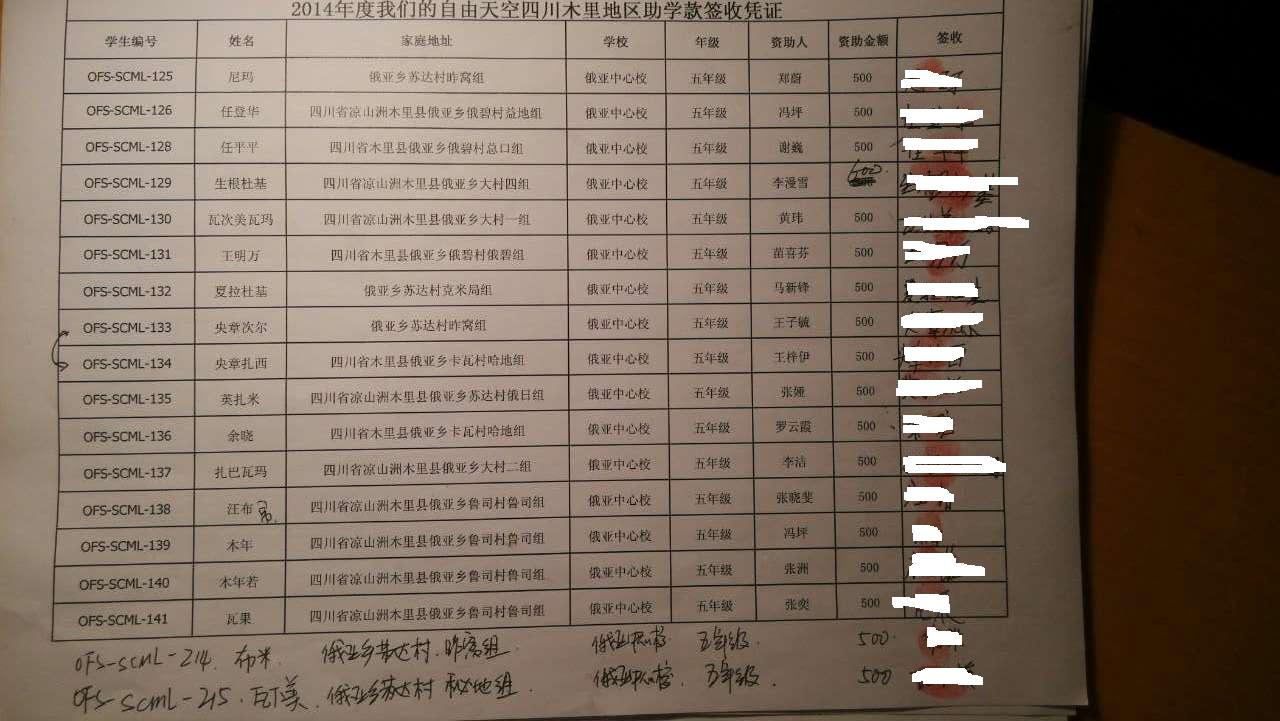 2014年度我们的自由天空四川木里地区助学款签收凭证
学生编号 姓名 家庭地址 学校 年级 资助人 资助金额 签收
OFS-SCML-125 尼玛 俄亚乡苏达村昨窝组 俄亚中心校 五年级 郑蔚 500
OFS-SCML-126 任登华 四川省凉山洲木里县俄亚乡俄碧村益地组 俄亚中心校 五年级 冯坪 500
OFS-SCML-128 任平平 四川省木里县俄亚乡俄碧村总口组 俄亚中心校 五年级 谢巍 500
OFS-SCML-129 生根杜基 四川省凉山洲木里县俄亚乡大村四组 俄亚中心校 五年级 李漫雪 600
OFS-SCML-130 瓦次美瓦玛 四川省凉山洲木里县俄亚乡大村一组 俄亚中心校 五年级 黄玮 500
OFS-SCML-131 王明万 四川省木里县俄亚乡俄碧村俄碧组 俄亚中心校 五年级 苗喜芬 500
OFS-SCML-132 夏拉杜基 俄亚乡苏达村克米局组 俄亚中心校 五年级 马新锋 500
OFS-SCML-133 央章次尔 俄亚乡苏达村昨窝组 俄亚中心校 五年级 王子毓 500
OFS-SCML-134 央章扎西 四川省木里县俄亚乡卡瓦村哈地组 俄亚中心校 五年级 王梓伊 500
OFS-SCML-135 英扎米 四川省木里县俄亚乡苏达村俄日组 俄亚中心校 五年级 张娅 500
OFS-SCML-136 余晓 四川省木里县俄亚乡卡瓦村哈地组 俄亚中心校 五年级 罗云霞 500
OFS-SCML-137 扎巴瓦玛 四川省凉山洲木里县俄亚乡大村二组 俄亚中心校 五年级 李洁 500
OFS-SCML-138 汪布 四川省凉山洲木里县俄亚乡鲁司村鲁司组 俄亚中心校 五年级 张晓斐 500
OFS-SCML-139 木年 四川省凉山洲木里县俄亚乡鲁司村鲁司组 俄亚中心校 五年级 冯坪 500
OFS-SCML-140 木年若 四川省凉山洲木里县俄亚乡鲁司村鲁司组 俄亚中心校 五年级 张洲 500
OFS-SCML-141 瓦果 四川省凉山洲木里县俄亚乡鲁司村鲁司组 俄亚中心校 五年级 张奕 500
OFS-SCML-214. 布米. 俄亚乡苏达村.昨窝组. 俄亚中心校 五年级. 500.
OFS-SCML-215. 瓦丁美. 俄亚乡苏达村 组. 俄亚中心校. 五年级. 500